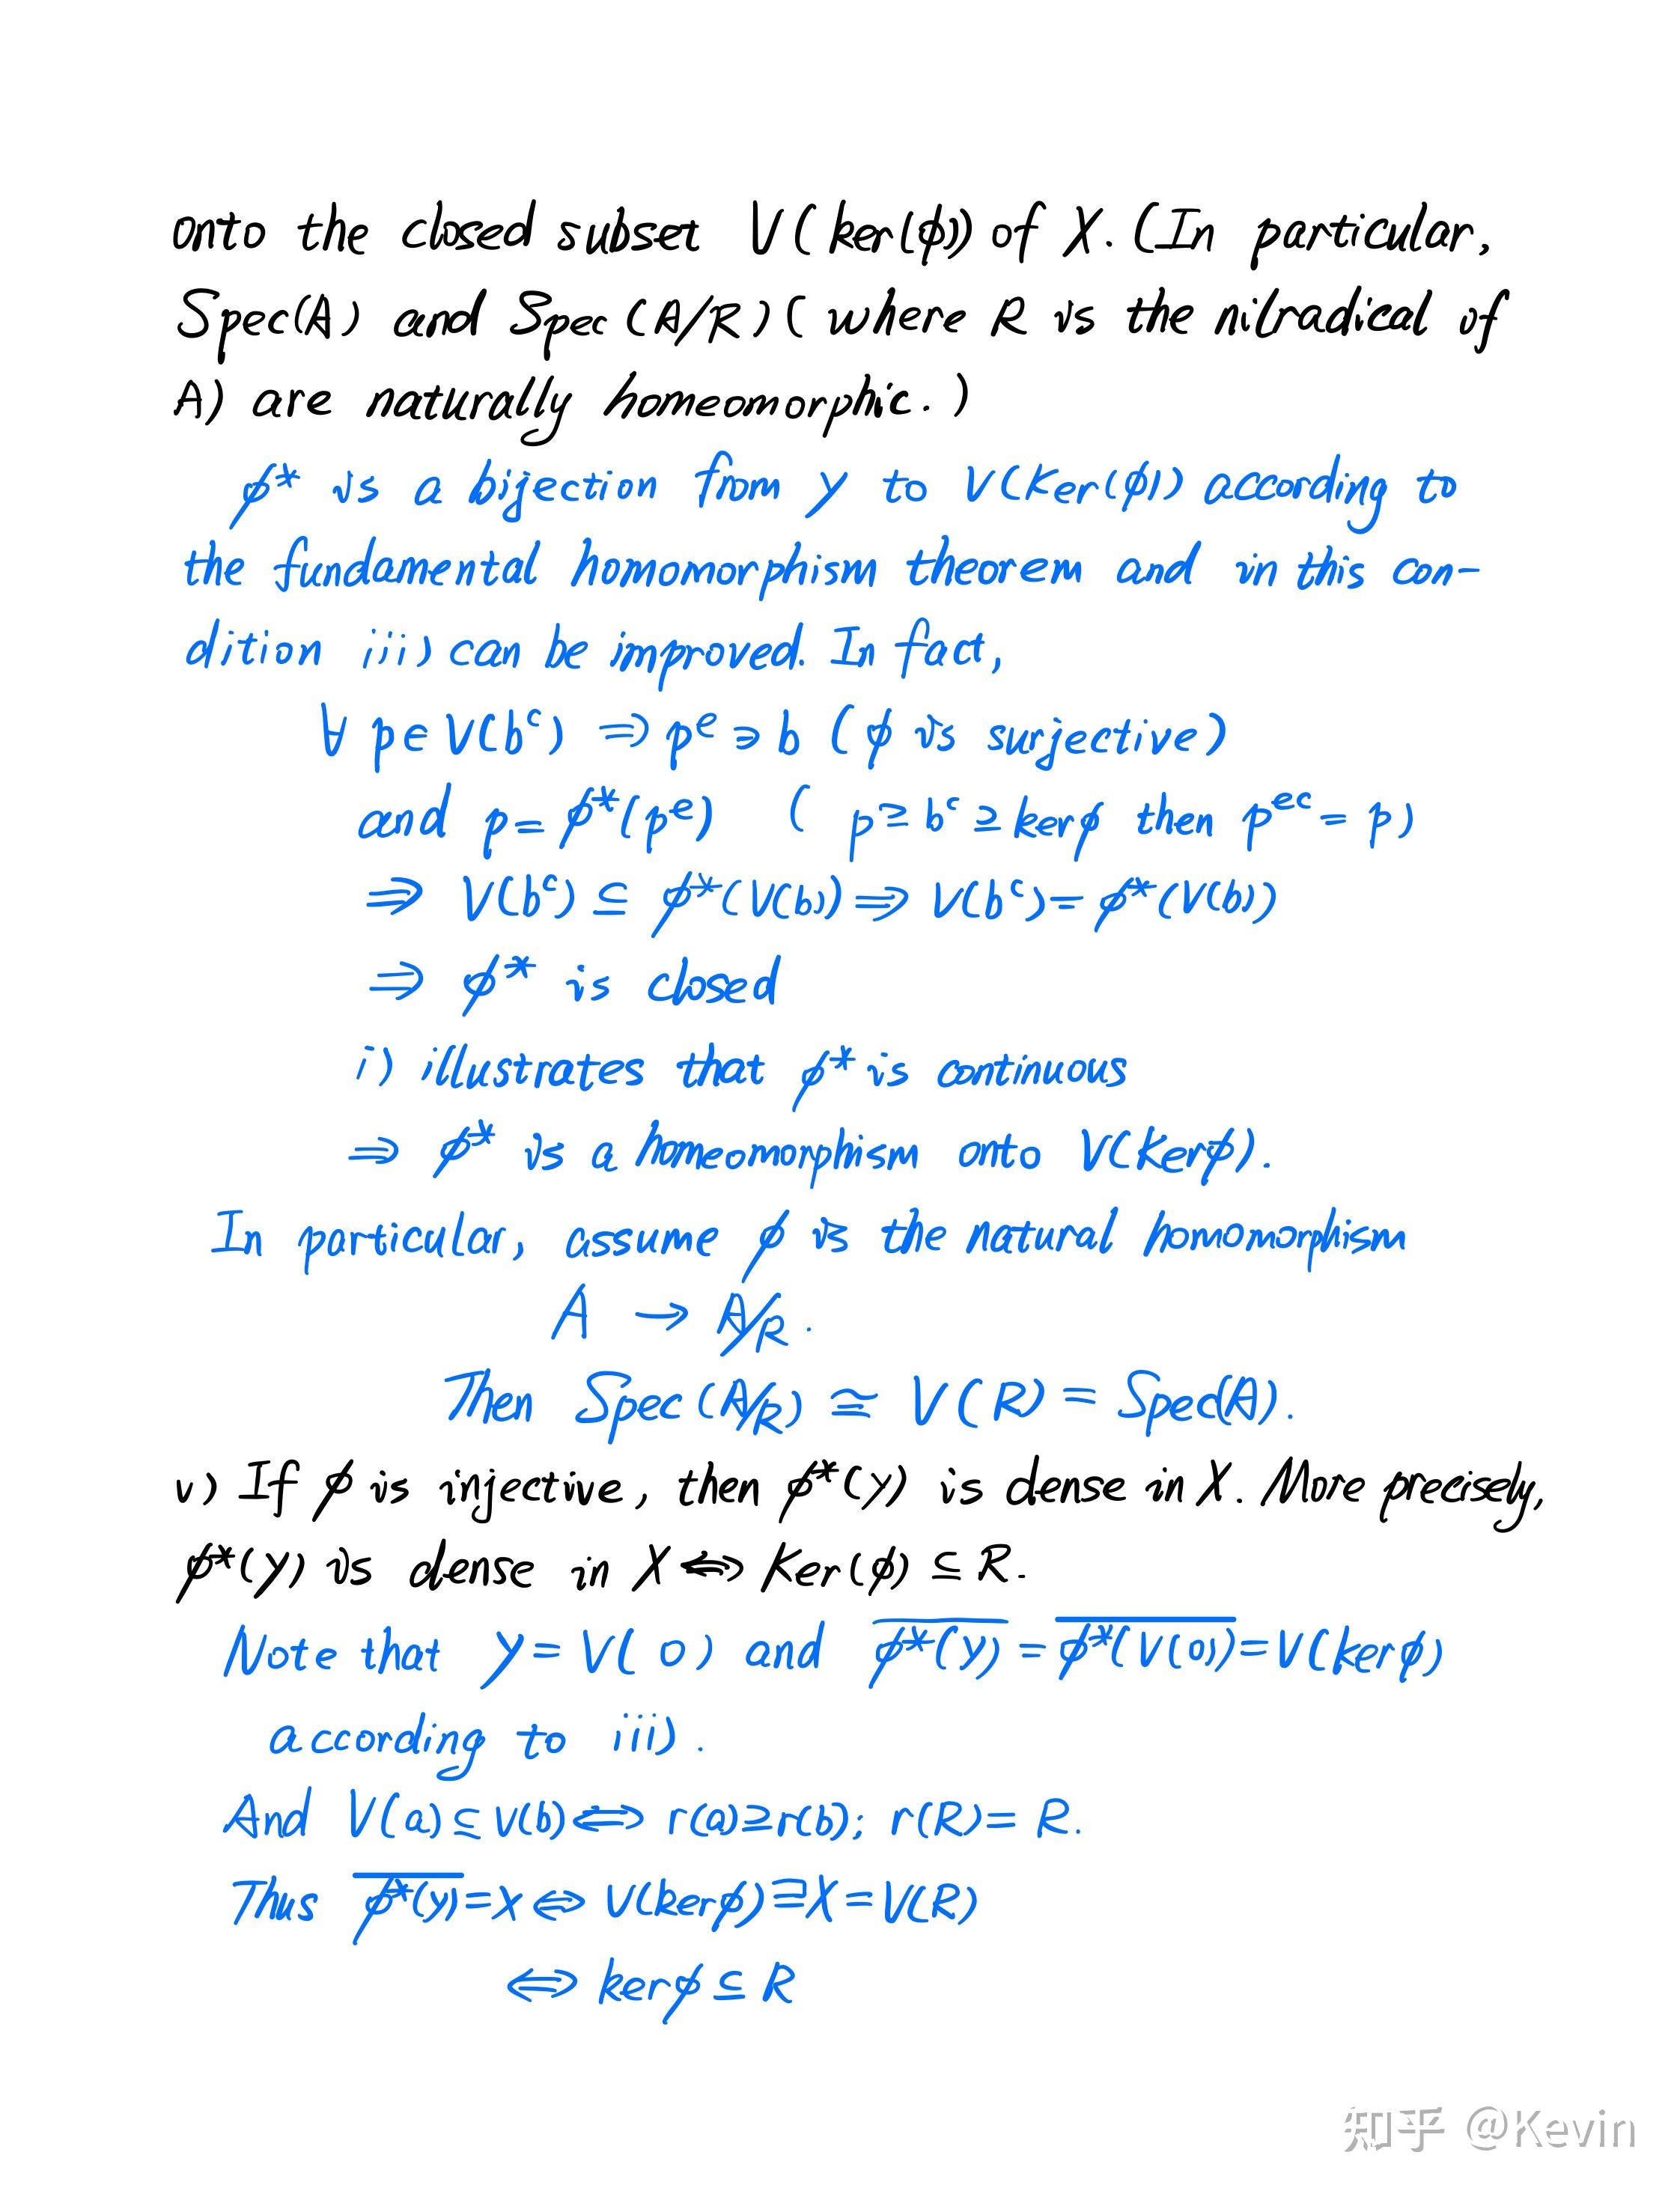 onto the closed subset V(ker(ϕ)) of X. (In particular,
Spec(A) and Spec(A/R)(where R is the nilradical of
A) are naturally homeomorphic.)
ϕ* is a bijection from Y to V(Ker(ϕ)) according to
the fundamental homomorphism theorem and in this con-
dition iii) can be improved. In fact,
∀ p∈V(bᶜ) ⇒ pᵉ⊇b (ϕ is surjective)
and p=ϕ*(pᵉ) (p⊇bᶜ⊇kerϕ then pᵉᶜ=p)
⇒ V(bᶜ)⊆ϕ*(V(b))⇒V(bᶜ)=ϕ*(V(b))
⇒ ϕ* is closed
i) illustrates that ϕ* is continuous
⇒ ϕ* is a homeomorphism onto V(Kerϕ).
In particular, assume ϕ is the natural homomorphism
A → A/R.
Then Spec(A/R) ≅ V(R) = Spec(A).
v) If ϕ is injective, then ϕ*(Y) is dense in X. More precisely,
ϕ*(Y) is dense in X ⇔ Ker(ϕ) ⊆ R.
Note that Y=V(0) and \overline{ϕ*(Y)} = \overline{ϕ*(V(0))}=V(kerϕ)
according to iii).
And V(a)⊆V(b)⇔r(a)⊇r(b); r(R)=R.
Thus \overline{ϕ*(Y)}=X⇔V(kerϕ)⊇X=V(R)
⇔ kerϕ⊆R
知乎 @Kevin